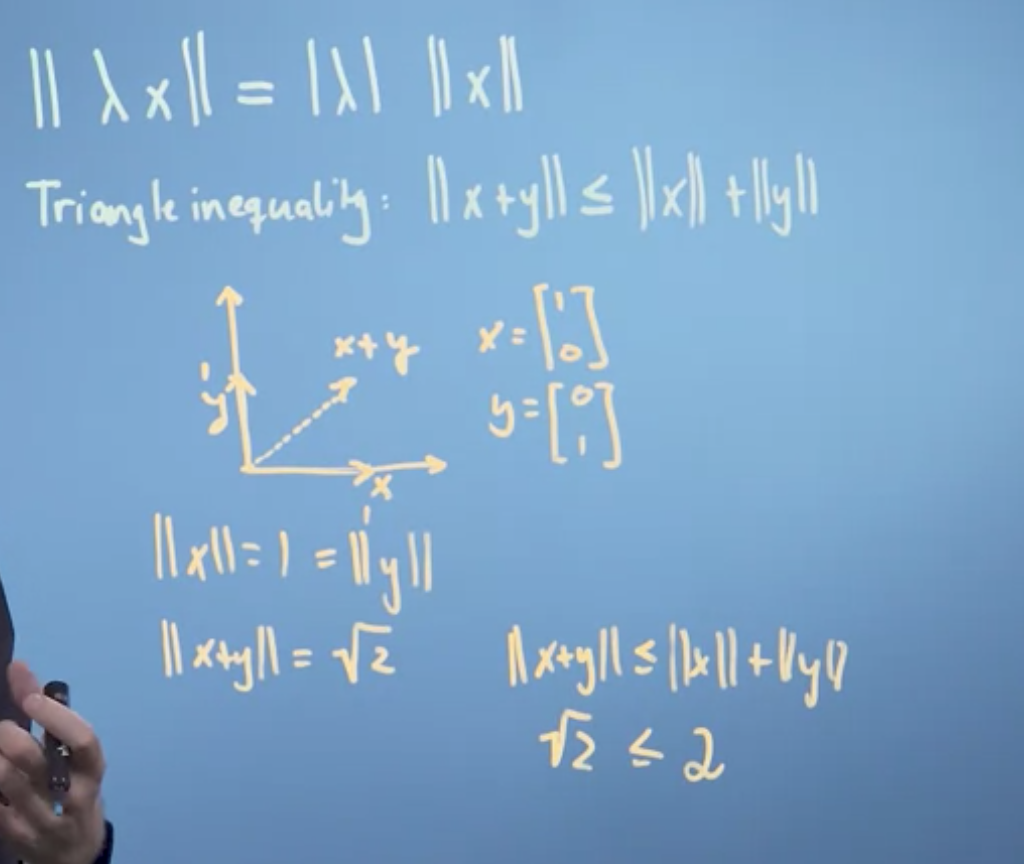 ‖λx‖ = |λ| ‖x‖
Triangle inequality: ‖x+y‖ ≤ ‖x‖ + ‖y‖
x+y
x = [1 0]
1
y
y = [0 1]
x
1
‖x‖ = 1 = ‖y‖
‖x+y‖ = √2
‖x+y‖ ≤ ‖x‖ + ‖y‖
√2 ≤ 2